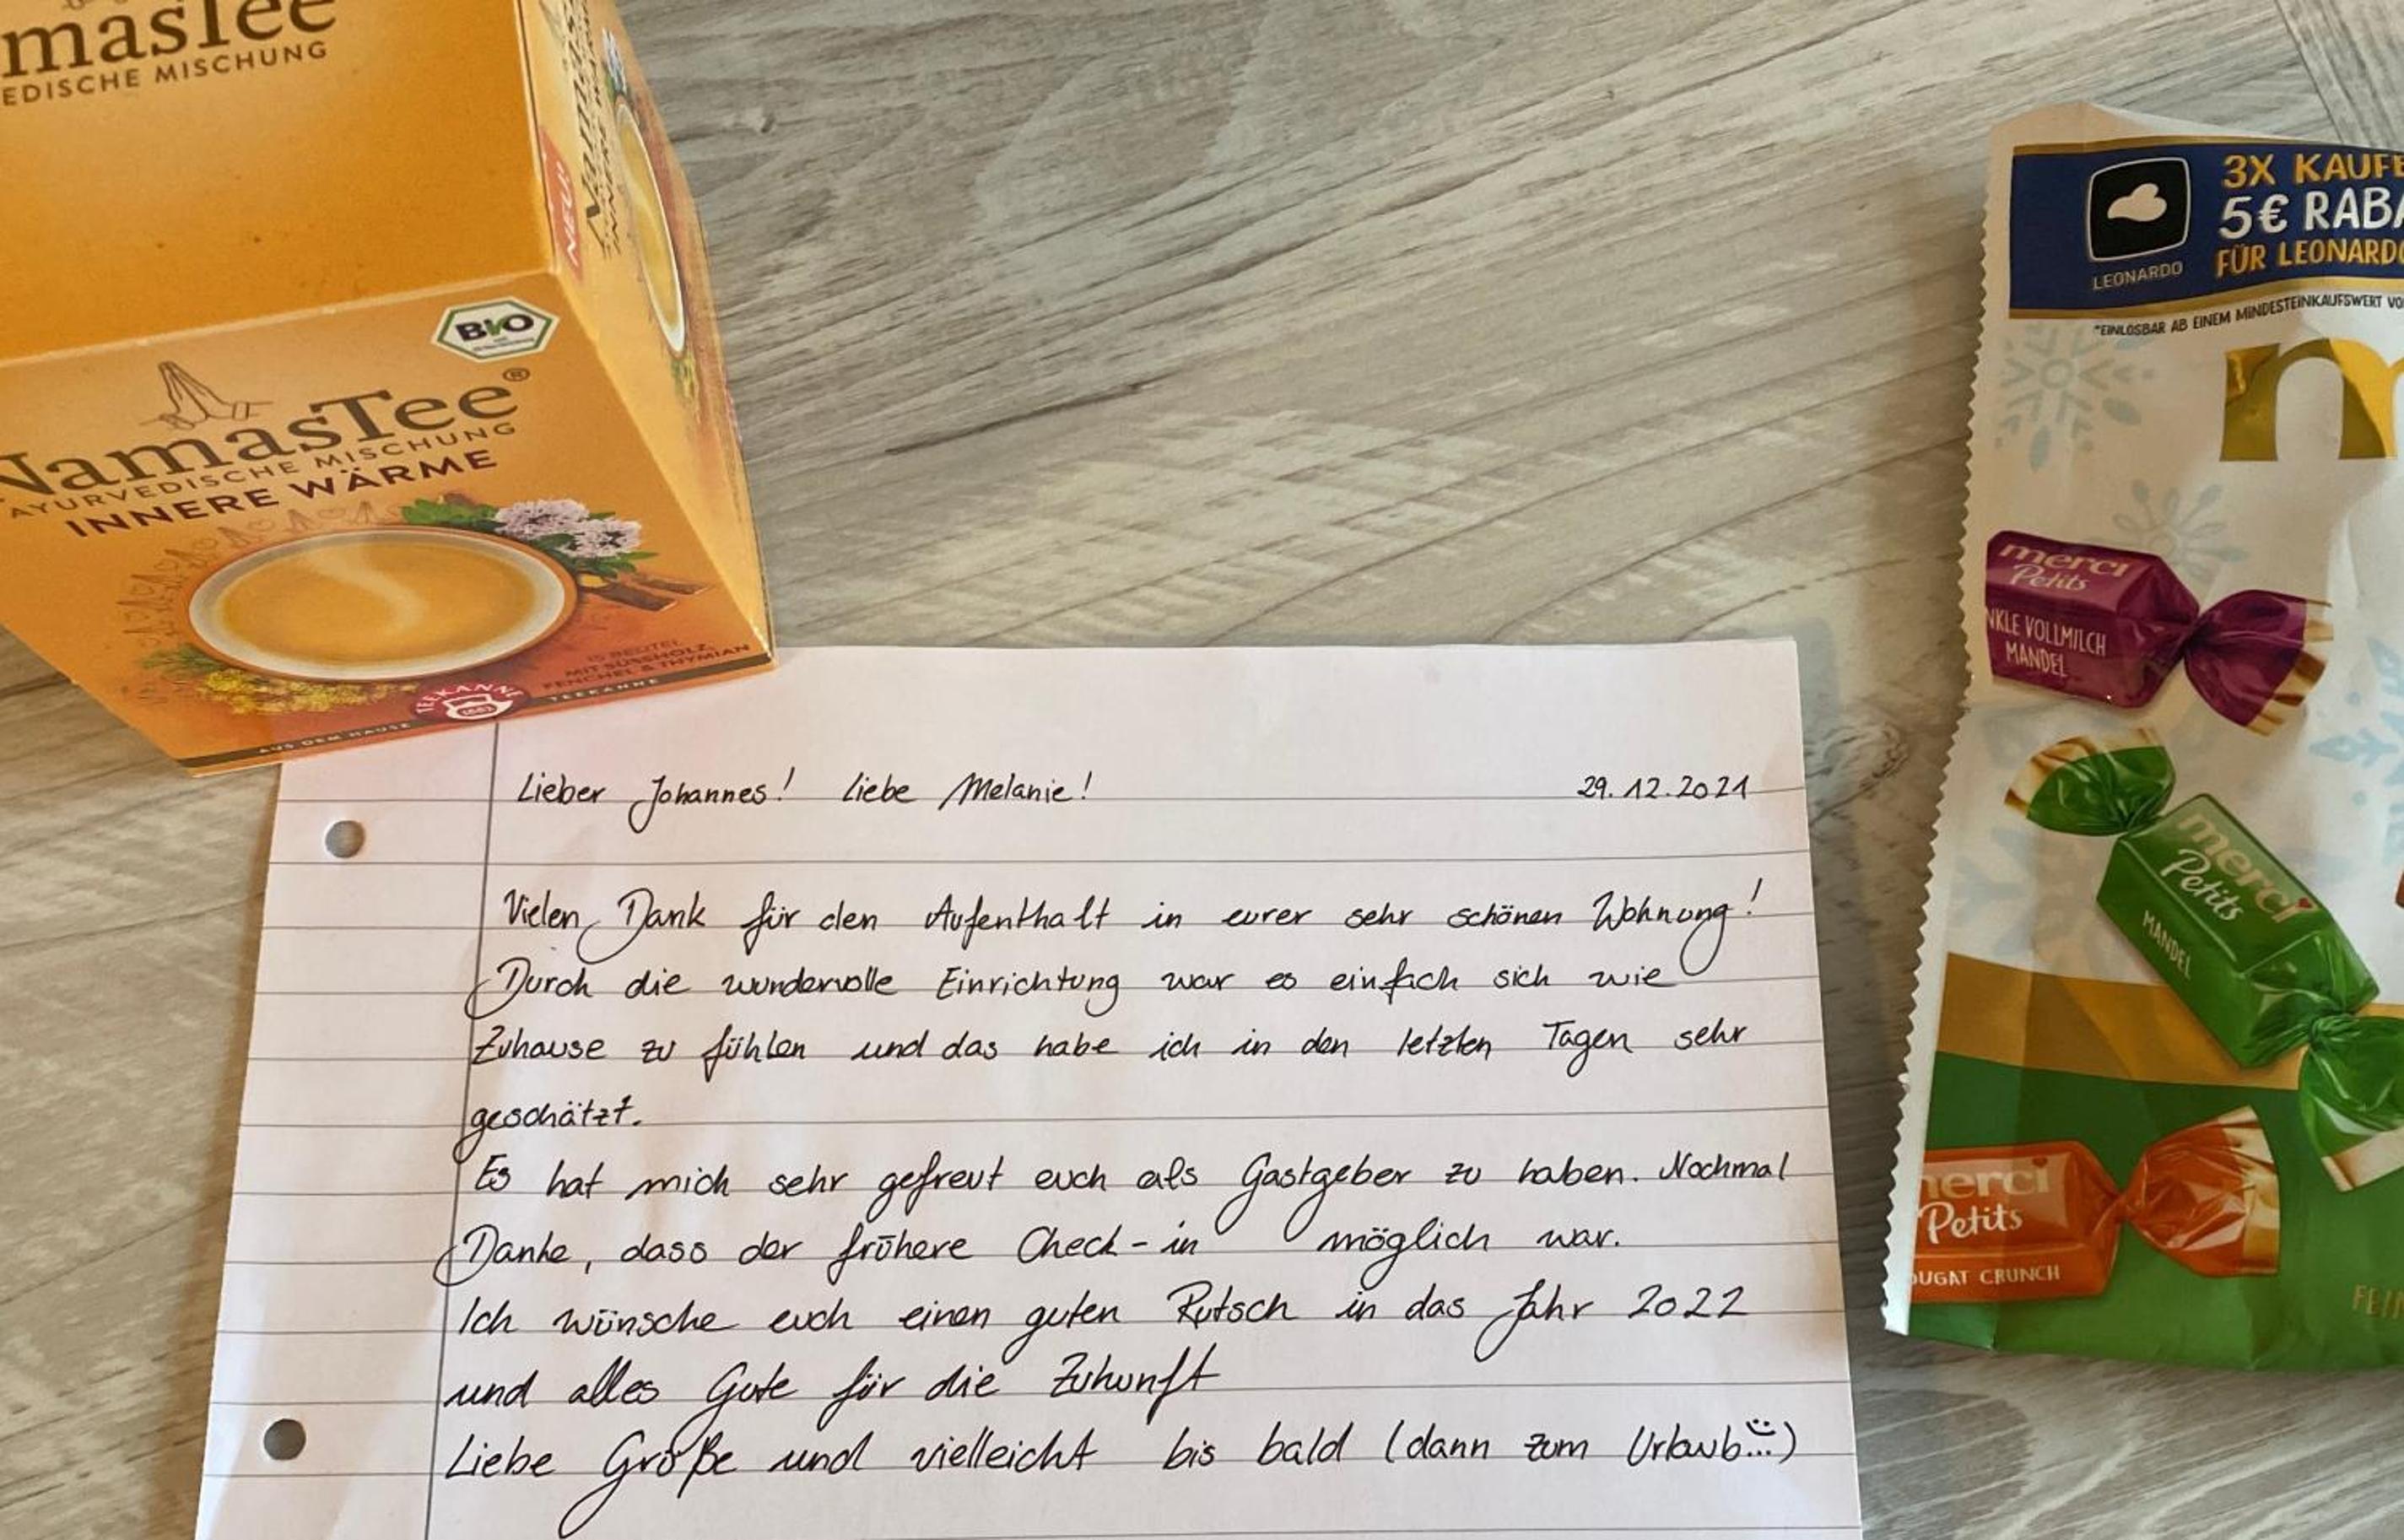 masTee
EDISCHE MISCHUNG
NEU!
BIO
NamasTee®
AYURVEDISCHE MISCHUNG
INNERE WÄRME
15 BEUTEL
MIT SÜSSHOLZ,
FENCHEL & THYMIAN
TEEKANNE
1882
AUS DEM HAUSE TEEKANNE
3X KAUFE
5€ RABA
LEONARDO
FÜR LEONARDO
*EINLÖSBAR AB EINEM MINDESTEINKAUFSWERT VO
m
merci
Petits
NKLE VOLLMILCH
MANDEL
merci
Petits
MANDEL
merci
Petits
OUGAT CRUNCH
FEI
Lieber Johannes! Liebe Melanie! 29.12.2021
Vielen Dank für den Aufenthalt in eurer sehr schönen Wohnung!
Durch die wundervolle Einrichtung war es einfach sich wie
Zuhause zu fühlen und das habe ich in den letzten Tagen sehr
geschätzt.
Es hat mich sehr gefreut euch als Gastgeber zu haben. Nochmal
Danke, dass der frühere Check-in möglich war.
Ich wünsche euch einen guten Rutsch in das Jahr 2022
und alles Gute für die Zukunft
Liebe Grüße und vielleicht bis bald (dann zum Urlaub...)